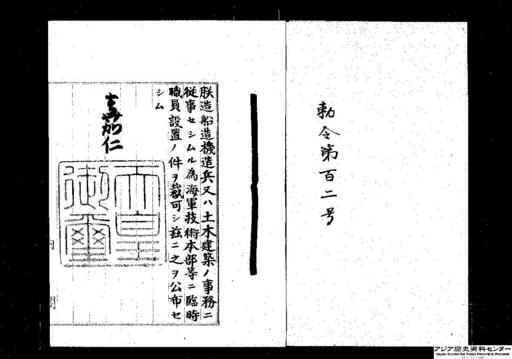 勅令第百二号
朕造船造機造兵又ハ土木建築ノ事務ニ
従事セシムル為海軍技術本部等ニ臨時
職員設置ノ件ヲ裁可シ茲ニ之ヲ公布セ
シム
嘉仁
天皇御璽
内閣
アジア歴史資料センター
Japan Center for Asian Historical Records